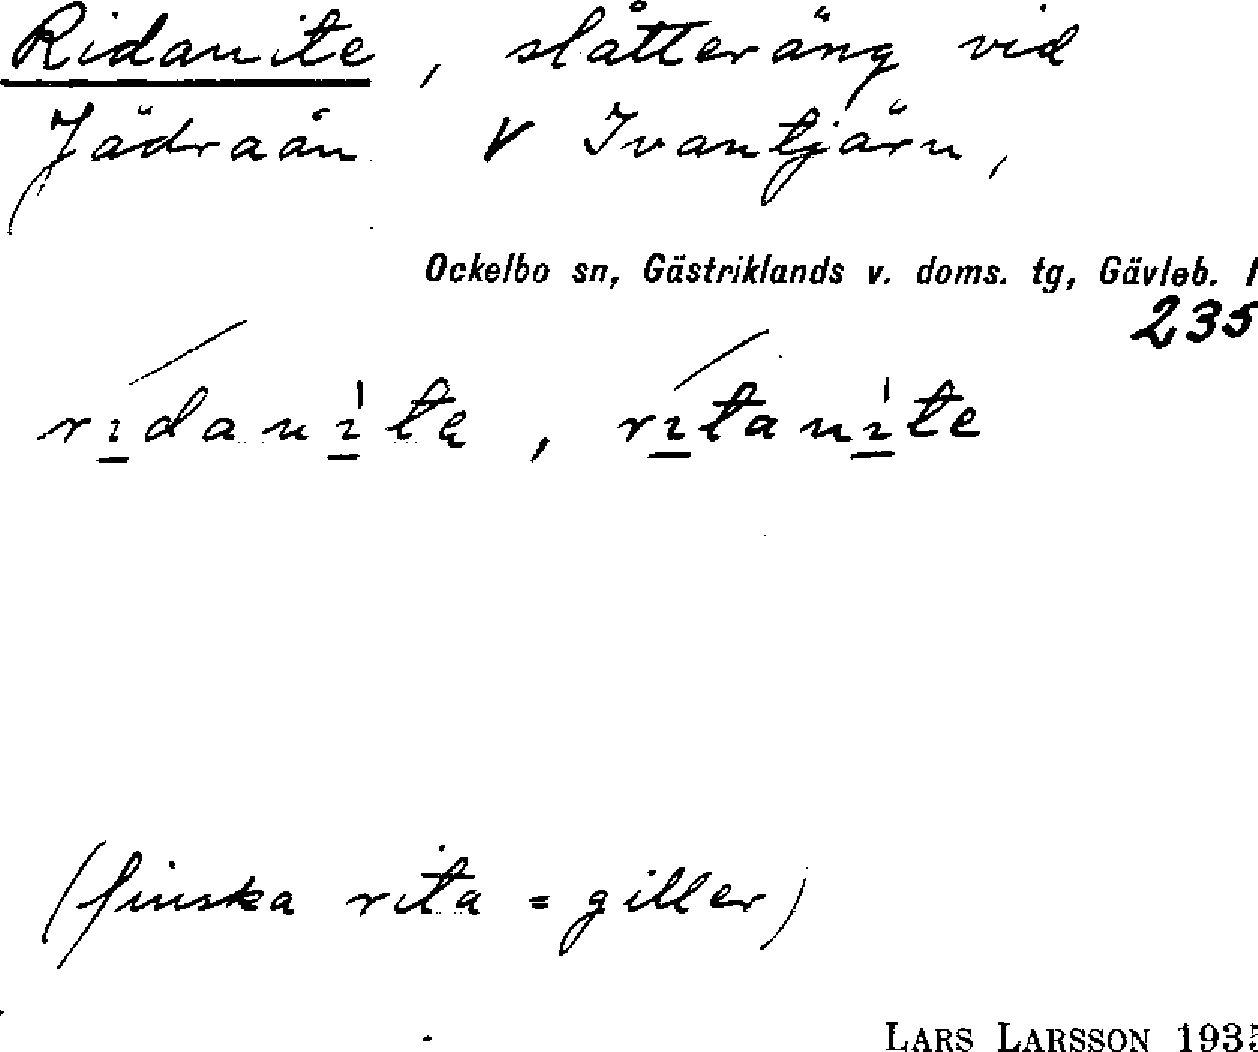 Ridanite, slåtteräng vid
Jädraån V Ivantjärn,
Ockelbo sn, Gästriklands v. doms. tg, Gävleb. l
235
rìdanìtę, rìtanìte
(finska rita = giller)
LARS LARSSON 1935